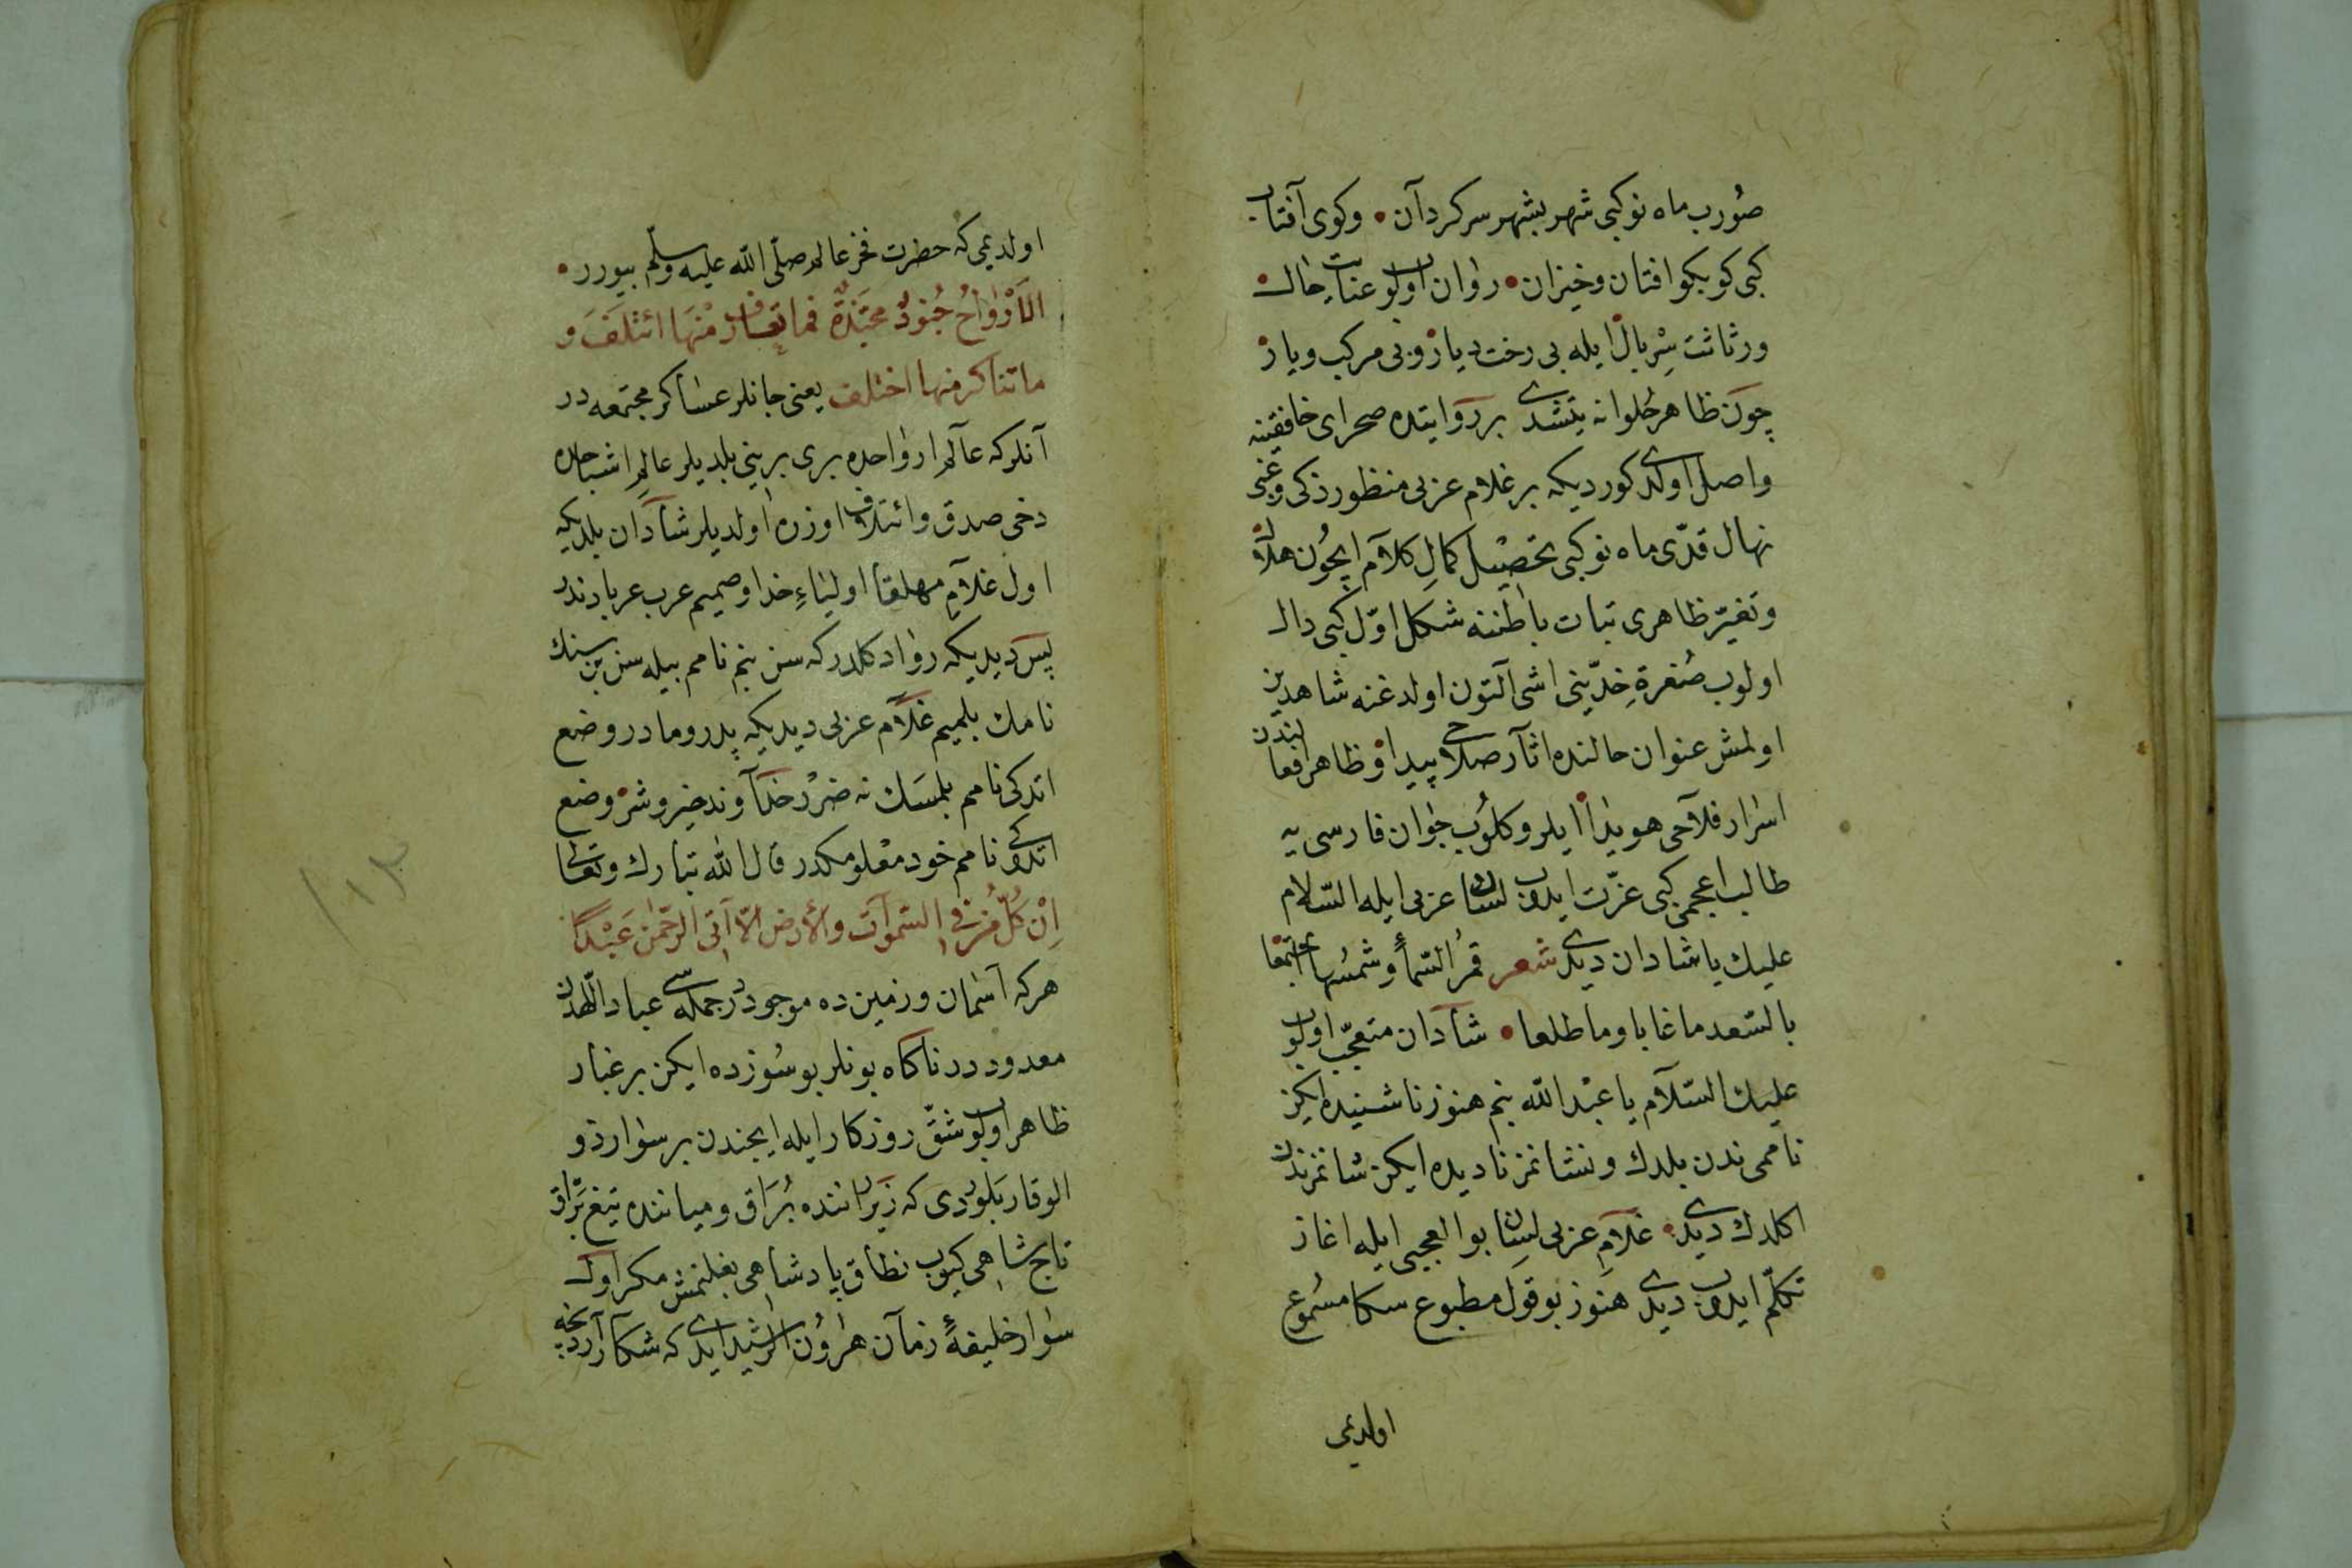 صورب ماه نوكبى شهر بشهر سركردآن • وكوى آفتاب
كبى كو بكو افتان وخيزان • روان اولوب عنايت حال
ورثاثت سربال ايله بى رخت ديار وبى مركب ويار
چون ظاهر حلوانه يتشدى بر روايتده صحراى خافقينه
واصل اولدى كورديكه بر غلام عربى منظور ذكى وغنى
نهال قدى ماه نوكبى تحصيل كمال كلام ايچون هلال
وتغير ظاهرى ثبات باطننه شكل اول كبى دال
اولوب صفرة خدينى اشى آلتون اولدغنه شاهدين
اولمش عنوان حالنده اثار صلاحى پيدا وظاهر افعالندن
اسرار فلاحى هويدا ايلر وكلوب جوان فارسى يه
طالب اعجمى كبى عزت ايدوب لسان عربى ايله السلام
عليك يا شادان ديدى شعر قمر السماء وشمسها اجتمعا
بالسعد ما غابا وما طلعا • شادان متعجب اولوب
عليك السلام يا عبد الله بنم هنوز ناشنيده ايكن
ناممى ندن بلدك ونشانمز ناديده ايكن شانمز ندن
اكلدك ديدى • غلام عربى لسان بو العجبى ايله اغاز
تكلم ايدوب ديدى هنوز بو قول مطبوع سكا مسموع
اولدى
اولدى كه حضرت فخر عالم صلى الله عليه وسلم بيورر •
الأرواح جنود مجندة فما تعارف منها ائتلف و
ما تناكر منها اختلف يعنى جانلر عساكر مجتمعه در
آنلركه عالم ارواحده برى برينى بلديلر عالم اشباحده
دخى صدق وائتلاف اوزره اولديلر شادان بلديكه
اول غلام مهلقا اولياء خدا وصميم عرب عربادندر
پس ديديكه روا دكلدركه سن بنم نامم بيله سن بن سنك
نامك بلميم غلام عربى ديديكه پدر ومادر وضع
اتدكى نامم بلمسك نه ضرر خداوند خير وشر وضع
اتدوكى نامم خود معلومكدر قال الله تبارك وتعالى
إن كل من فى السموات والأرض إلا آتى الرحمن عبدا
هركه آسمان وزمين ده موجوددر جملسى عباد اللهدن
معدوددر ناكاه بونلر بو سوزده ايكن بر غبار
ظاهر اولوب شق روزكار ايله ايچندن بر سوار ذو
الوقار بلوردى كه زير راننده براق وميانده تيغ براق
تاج شاهى كيوب نطاق پادشاهى بغلنمش مكر اول
سوار خليفۀ زمان هرون الرشيد ايدى كه شكار اردنجه
١١٣